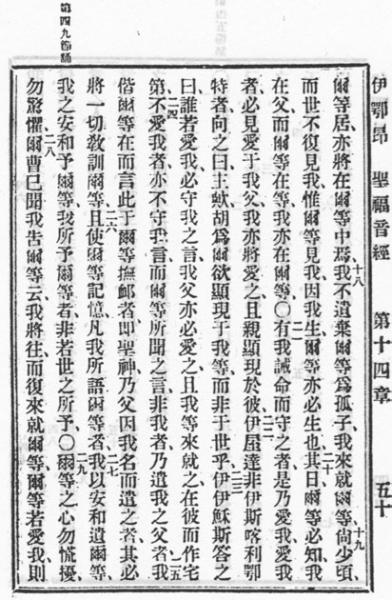 伊鄂昂 聖福音經 第十四章 五十
爾等居亦將在爾等中焉、十八我不遺棄爾等爲孤子、我來就爾等、十九尙少頃、
而世不復見我、惟爾等見我、因我生爾等亦必生也、二十其日爾等必知我
在父、而爾等在等我亦在爾等〇二一有我誡命而守之者是乃愛我、愛我
者必見愛于我父、我亦將愛之、且親顯現於彼、二二伊屋達非伊斯喀利鄂
特者、向之曰、主歟、胡爲爾欲顯現于我等、而非于世乎、二三伊伊穌斯答之
曰、誰若愛我必守我之言、我父亦必愛之、且我等來就之、在彼而作宅、
二四第不愛我者、亦不守我言、而爾等所聞之言、非我者、乃遣我之父者、二五我
偕爾等在而言此于爾等、二六撫卹者即聖神、乃父因我名而遣之者、其必
將一切敎訓爾等、且使爾等記憶凡我所語爾等者、二七我以安和遺爾等、
我之安和予爾等、我所予爾等者、非若世之所予〇爾等之心勿慌擾、
勿驚懼、二八爾曹已聞我吿爾等云、我將往而復來就爾等、爾等若愛我、則
第四九節誦